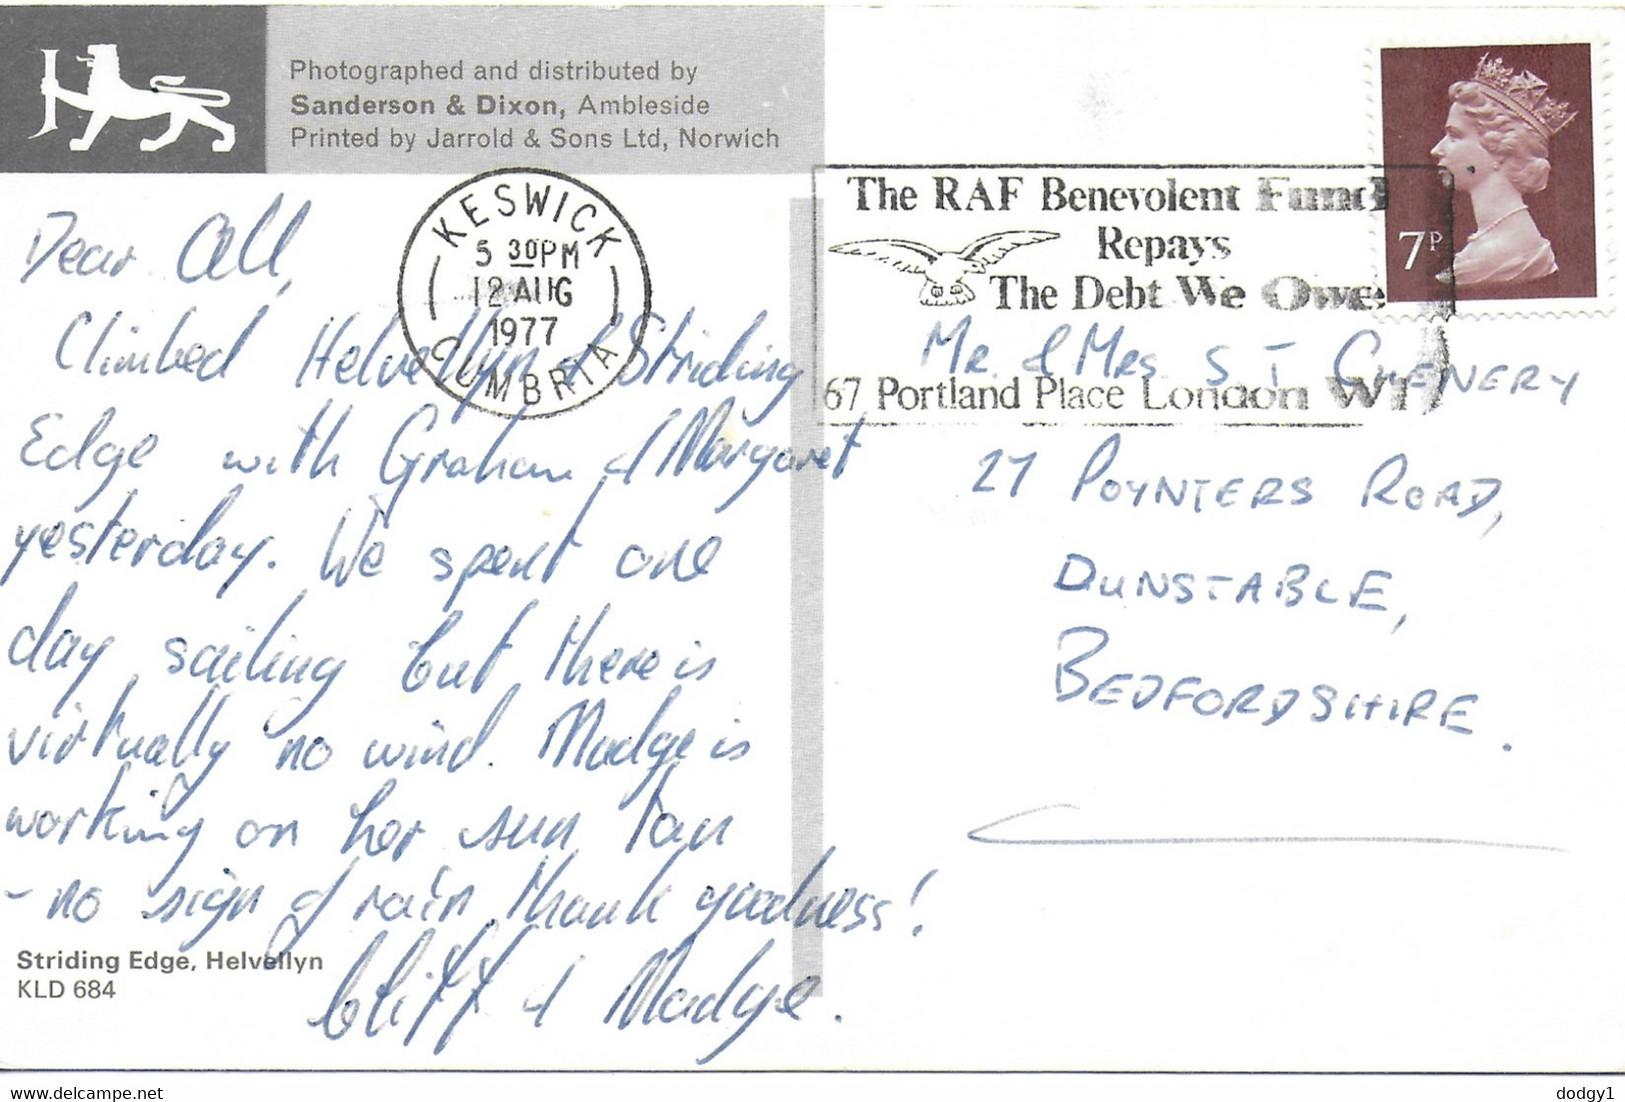 Photographed and distributed by
Sanderson & Dixon, Ambleside
Printed by Jarrold & Sons Ltd, Norwich
KESWICK
5 30PM
12 AUG
1977
CUMBRIA
The RAF Benevolent Fund
Repays
The Debt We Owe
67 Portland Place London W1
7P
Dear All,
Climbed Helvellyn & Striding
Edge with Graham & Margaret
yesterday. We spent one
day sailing but there is
virtually no wind. Madge is
working on her sun tan
- no sign of rain thank goodness!
Cliff & Madge.
Striding Edge, Helvellyn
KLD 684
Mr. & Mrs. S T CHENERY
27 POYNTERS ROAD,
DUNSTABLE,
BEDFORDSHIRE.
www.delcampe.net
dodgy1